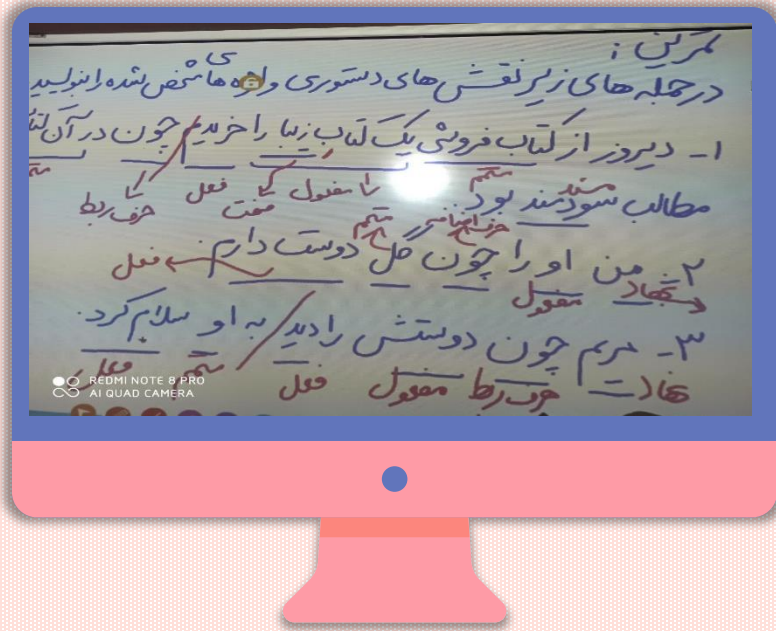 تمرین :
در جمله های زیر نقش های دستوری واژه های مشخص شده را بنویسید
۱- دیروز از کتاب فروشی یک کتاب زیبا را خریدیم چون در آن
متمم مفعول صفت فعل حرف ربط
مطالب سودمند بود
مسند
۲- من او را چون گل دوست دارم.
نهاد مفعول حرف اضافه متمم فعل
۳- مریم چون دوستش را دید به او سلام کرد.
نهاد حرف ربط مفعول فعل متمم فعل
REDMI NOTE 8 PRO
AI QUAD CAMERA